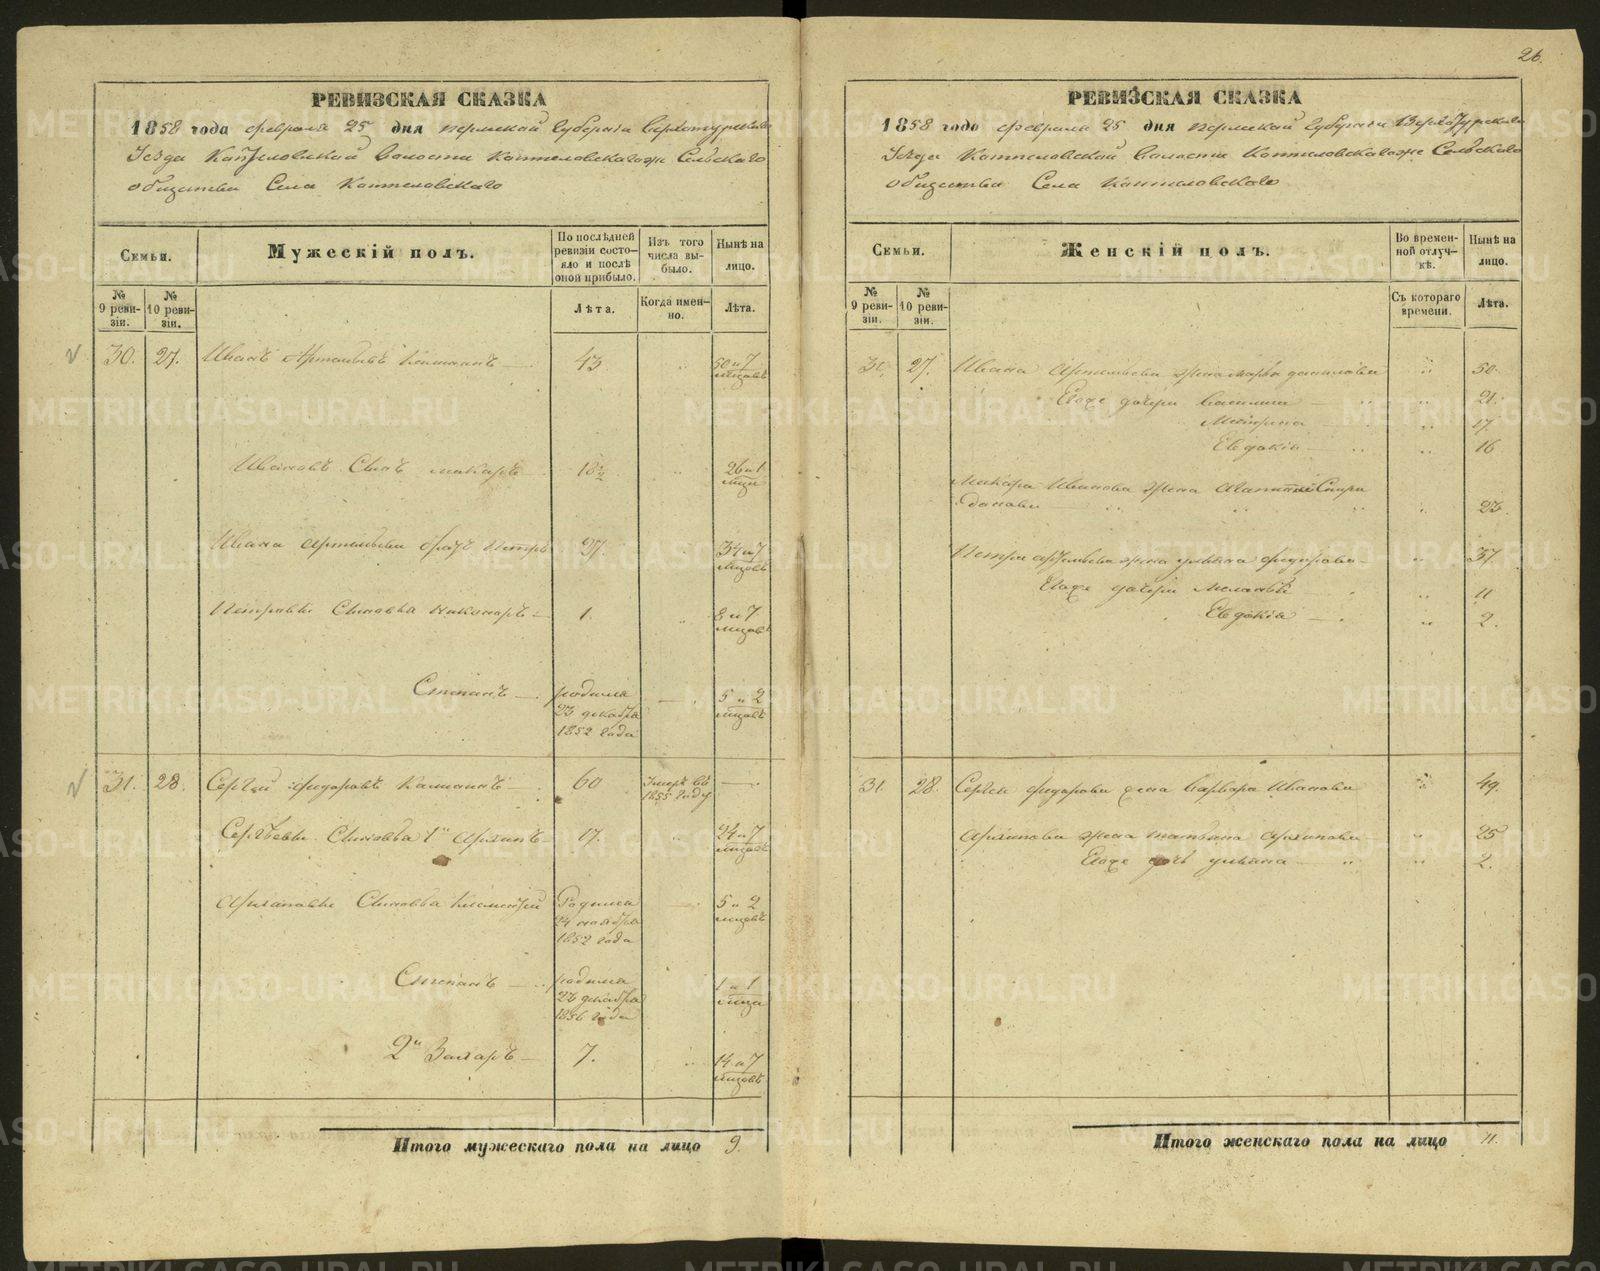 26.
РЕВИЗСКАЯ СКАЗКА
1858 года февраля 25 дня Пермской Губернии Верхотурскаго
Уѣзда Коптеловской Волости Коптеловскагоже Сельскаго
общества Села Коптеловскаго
Семьи.
Мужескій полъ.
По послѣдней ревизіи состояло и послѣ оной прибыло.
Изъ того числа выбыло.
Нынѣ на лицо.
№ 9 ревизіи.
№ 10 ревизіи.
Лѣта.
Когда именно.
Лѣта.
30. 27. Иванъ Артемьевъ 43 50 и 7 мѣсяцовъ
Ивановъ Сынъ Макаръ 18½ 26 и 1 мѣсяц
Ивана Артемьева братъ Петръ 27. 34 и 7 мѣсяцовъ
Петровы Сыновья Никоноръ 1. 8 и 7 мѣсяцовъ
Степанъ родился 23 декабря 1852 года 5 и 2 мѣсяцовъ
31. 28. Сергѣй Федоровъ 60 Умеръ въ 1855 году
Сергѣевы Сыновья 1й Архипъ 17. 24 и 7 мѣсяцовъ
Архиповы Сыновья Климентій Родился 24 ноября 1852 года 5 и 2 мѣсяцовъ
Степанъ родился 23 декабря 1856 года 1 и 1 мѣсяца
2й Захаръ 7. 14 и 7 мѣсяцовъ
Итого мужескаго пола на лицо 9.
РЕВИЗСКАЯ СКАЗКА
1858 года февраля 25 дня Пермской Губернии Верхотурскаго
Уѣзда Коптеловской Волости Коптеловскагоже Сельскаго
общества Села Коптеловскаго
Семьи.
Женскій полъ.
Во временной отлучкѣ.
Нынѣ на лицо.
№ 9 ревизіи.
№ 10 ревизіи.
Съ котораго времени.
Лѣта.
30. 27. Ивана Артемьева жена Марфа Данилова 50.
Егоже дочери Василиса 21.
17.
Евдокія 16
Макара Иванова жена Спиридонова 23.
Петра Артемьева жена Ульяна Федорова 37.
Егоже дочери Меланья 11
Евдокія 2.
31. 28. Сергѣя Федорова жена Варвара Иванова 49.
Архипова жена Татьяна Архипова 25
Егоже дочь Ульяна 2.
Итого женскаго пола на лицо 11.
METRIKI.GASO-URAL.RU